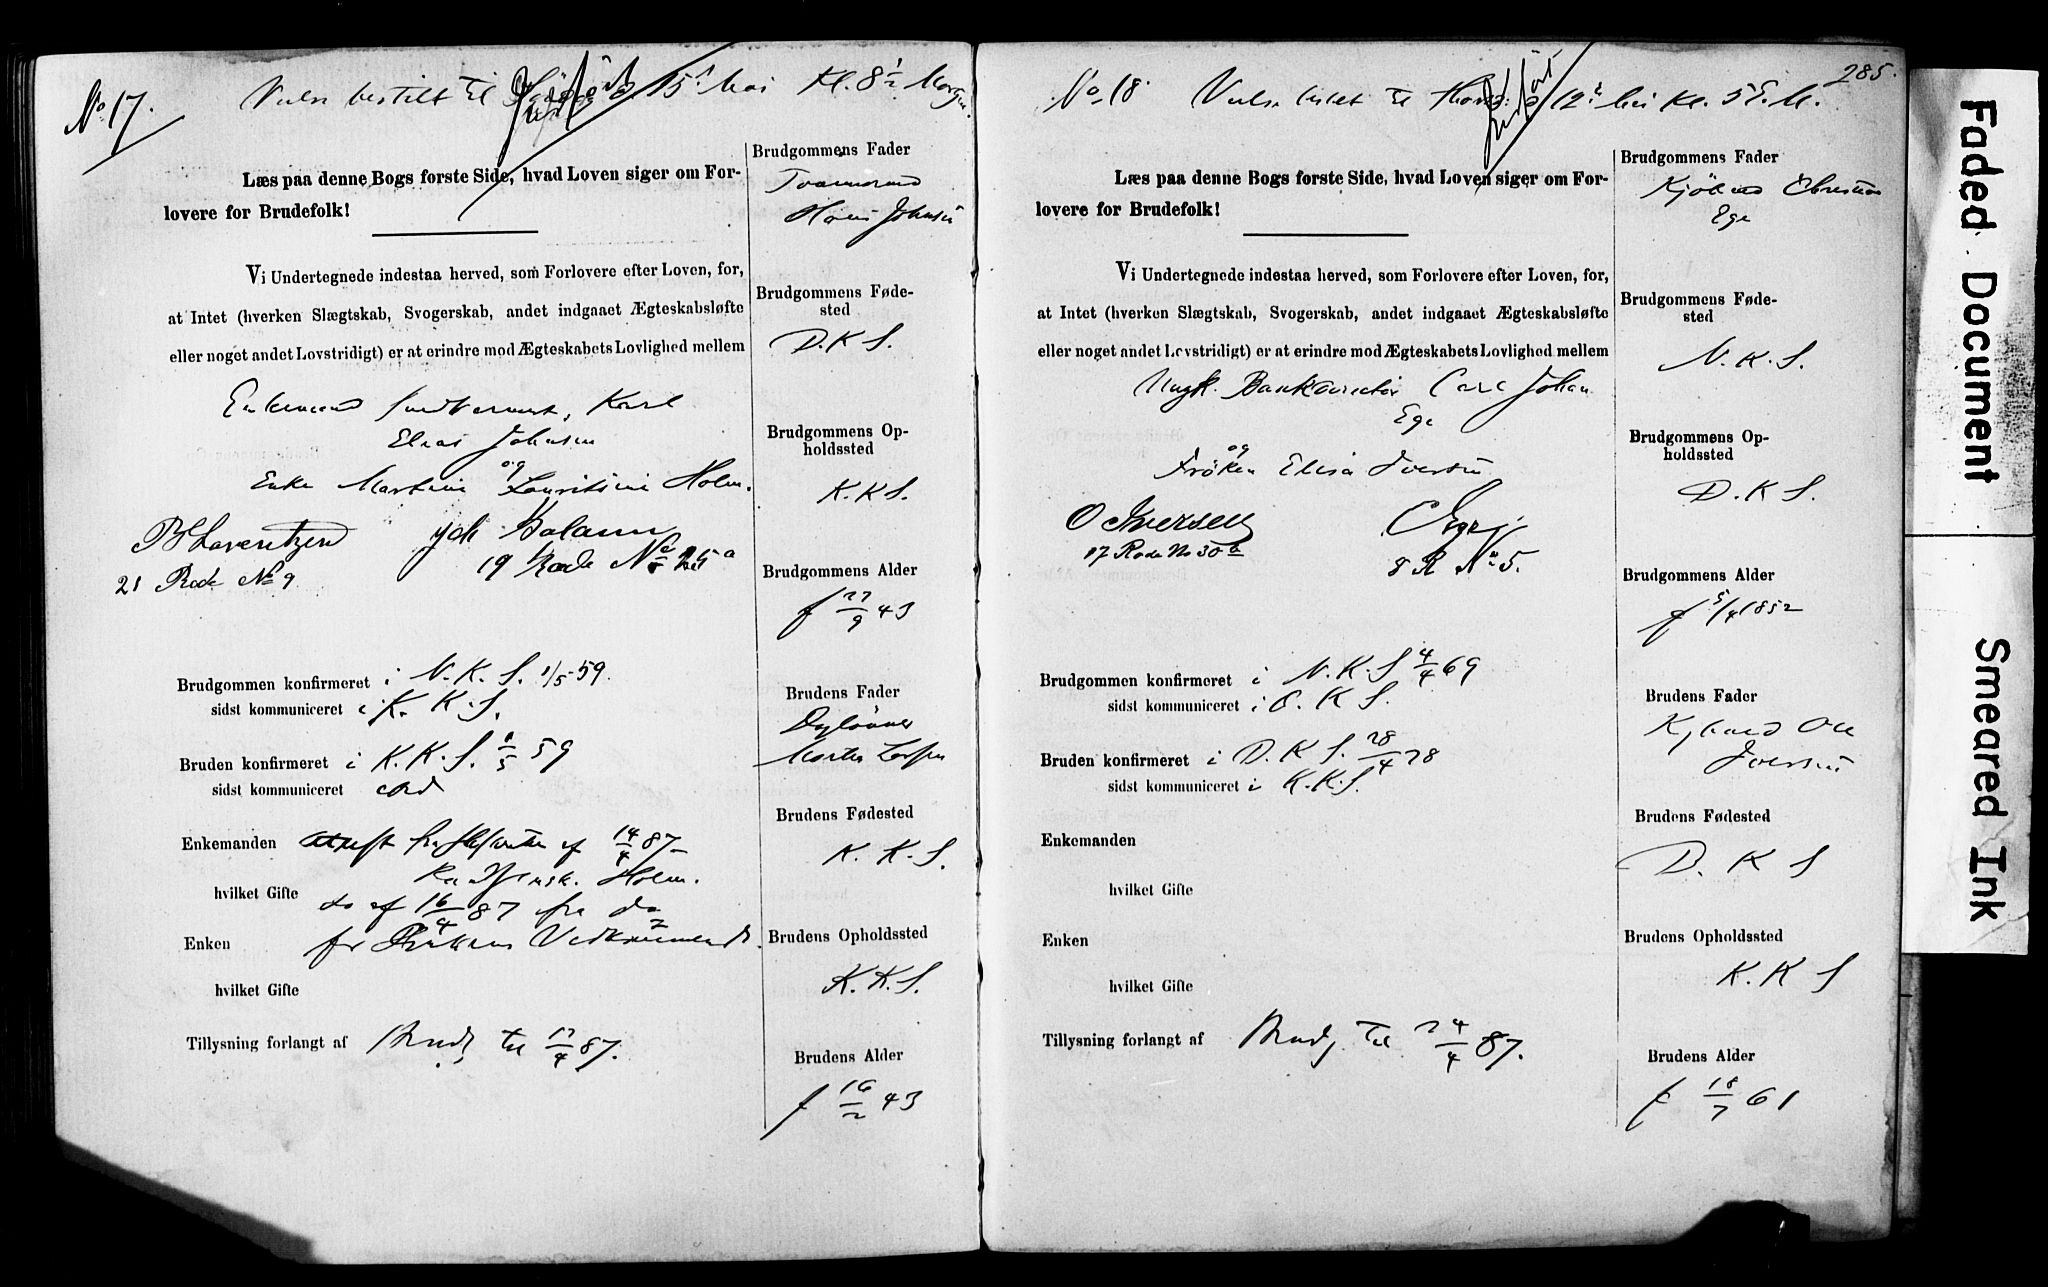 No 17. Vielse bestilt til 15de Mai Kl. 8½ Morgen.
Læs paa denne Bogs forste Side, hvad Loven siger om For-
lovere for Brudefolk!
Vi Undertegnede indestaa herved, som Forlovere efter Loven, for,
at Intet (hverken Slægtskab, Svogerskab, andet indgaaet Ægteskabsløfte
eller noget andet Lovstridigt) er at erindre mod Ægteskabets Lovlighed mellem
Enkemand Karl
Elias Johnsen
og
Enke Martine Lauritsine Holm.
B Lorentzen
21 Rode No 9
19 Rode No
Brudgommen konfirmeret i N. K. S. 1/5 59.
sidst kommuniceret i K. K. S.
Bruden konfirmeret i K. K. S. 59
sidst kommuniceret
Enkemanden fra af 14/4 87
Holm.
hvilket Gifte do af 16/4 87 fra do
Enken for Vedkommende.
hvilket Gifte
Tillysning forlangt af Brudg til 17/4 87.
Brudgommens Fader
Hans Johnsen
Brudgommens Føde-
sted
D. K. S.
Brudgommens Op-
holdssted
K. K. S.
Brudgommens Alder
f 27/9 43
Brudens Fader
Morten
Brudens Fødested
K. K. S.
Brudens Opholdssted
K. K. S.
Brudens Alder
f 16/2 43
285.
No 18. Vielse til 12te Mai Kl. 5 E. M.
Læs paa denne Bogs forste Side, hvad Loven siger om For-
lovere for Brudefolk!
Vi Undertegnede indestaa herved, som Forlovere efter Loven, for,
at Intet (hverken Slægtskab, Svogerskab, andet indgaaet Ægteskabsløfte
eller noget andet Lovstridigt) er at erindre mod Ægteskabets Lovlighed mellem
Ungk. Bankdirektør Carl Johan
Ege
og
Frøken Elisa Iversen
O Iversen
17 Rode No 30 b
C Ege
8 R No 5.
Brudgommen konfirmeret i N. K. S 4/4 69
sidst kommuniceret i O. K S.
Bruden konfirmeret i D. K S. 28/4 78
sidst kommuniceret i K. K. S.
Enkemanden
hvilket Gifte
Enken
hvilket Gifte
Tillysning forlangt af Brudg til 24/4 87.
Brudgommens Fader
Kjøbmd Christian
Ege
Brudgommens Føde-
sted
N. K. S.
Brudgommens Op-
holdssted
D. K S.
Brudgommens Alder
f 5/4 1852
Brudens Fader
Kjbmd Ole
Iversen
Brudens Fødested
D. K S
Brudens Opholdssted
K. K S
Brudens Alder
f 18/7 61
Faded Document
Smeared Ink